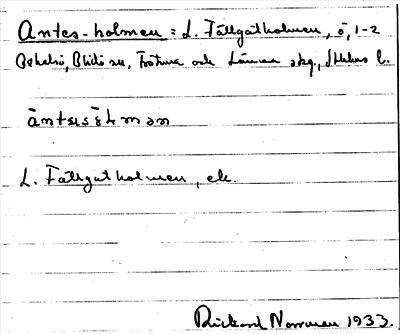 Antes-holmen = L. Fällgatholmen, ö, 1-2
Bekelsö, Blidö sn, Frötuna och Länna skg., Sthlms l.
L. Fällgatholmen, ek.
Rickard Norman 1933.